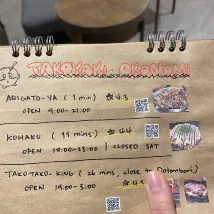 TAKOYAKI OKONOMI
ARIGATO-YA (1 min) ☆4.3
OPEN 9:00-21:00
KOHAKU (11 mins) ☆4.4
OPEN 18:00-23:00 | CLOSED SAT
TAKOTAKO KING (26 mins, close to Dotombori)
OPEN 18:00-3:00 ☆4.3